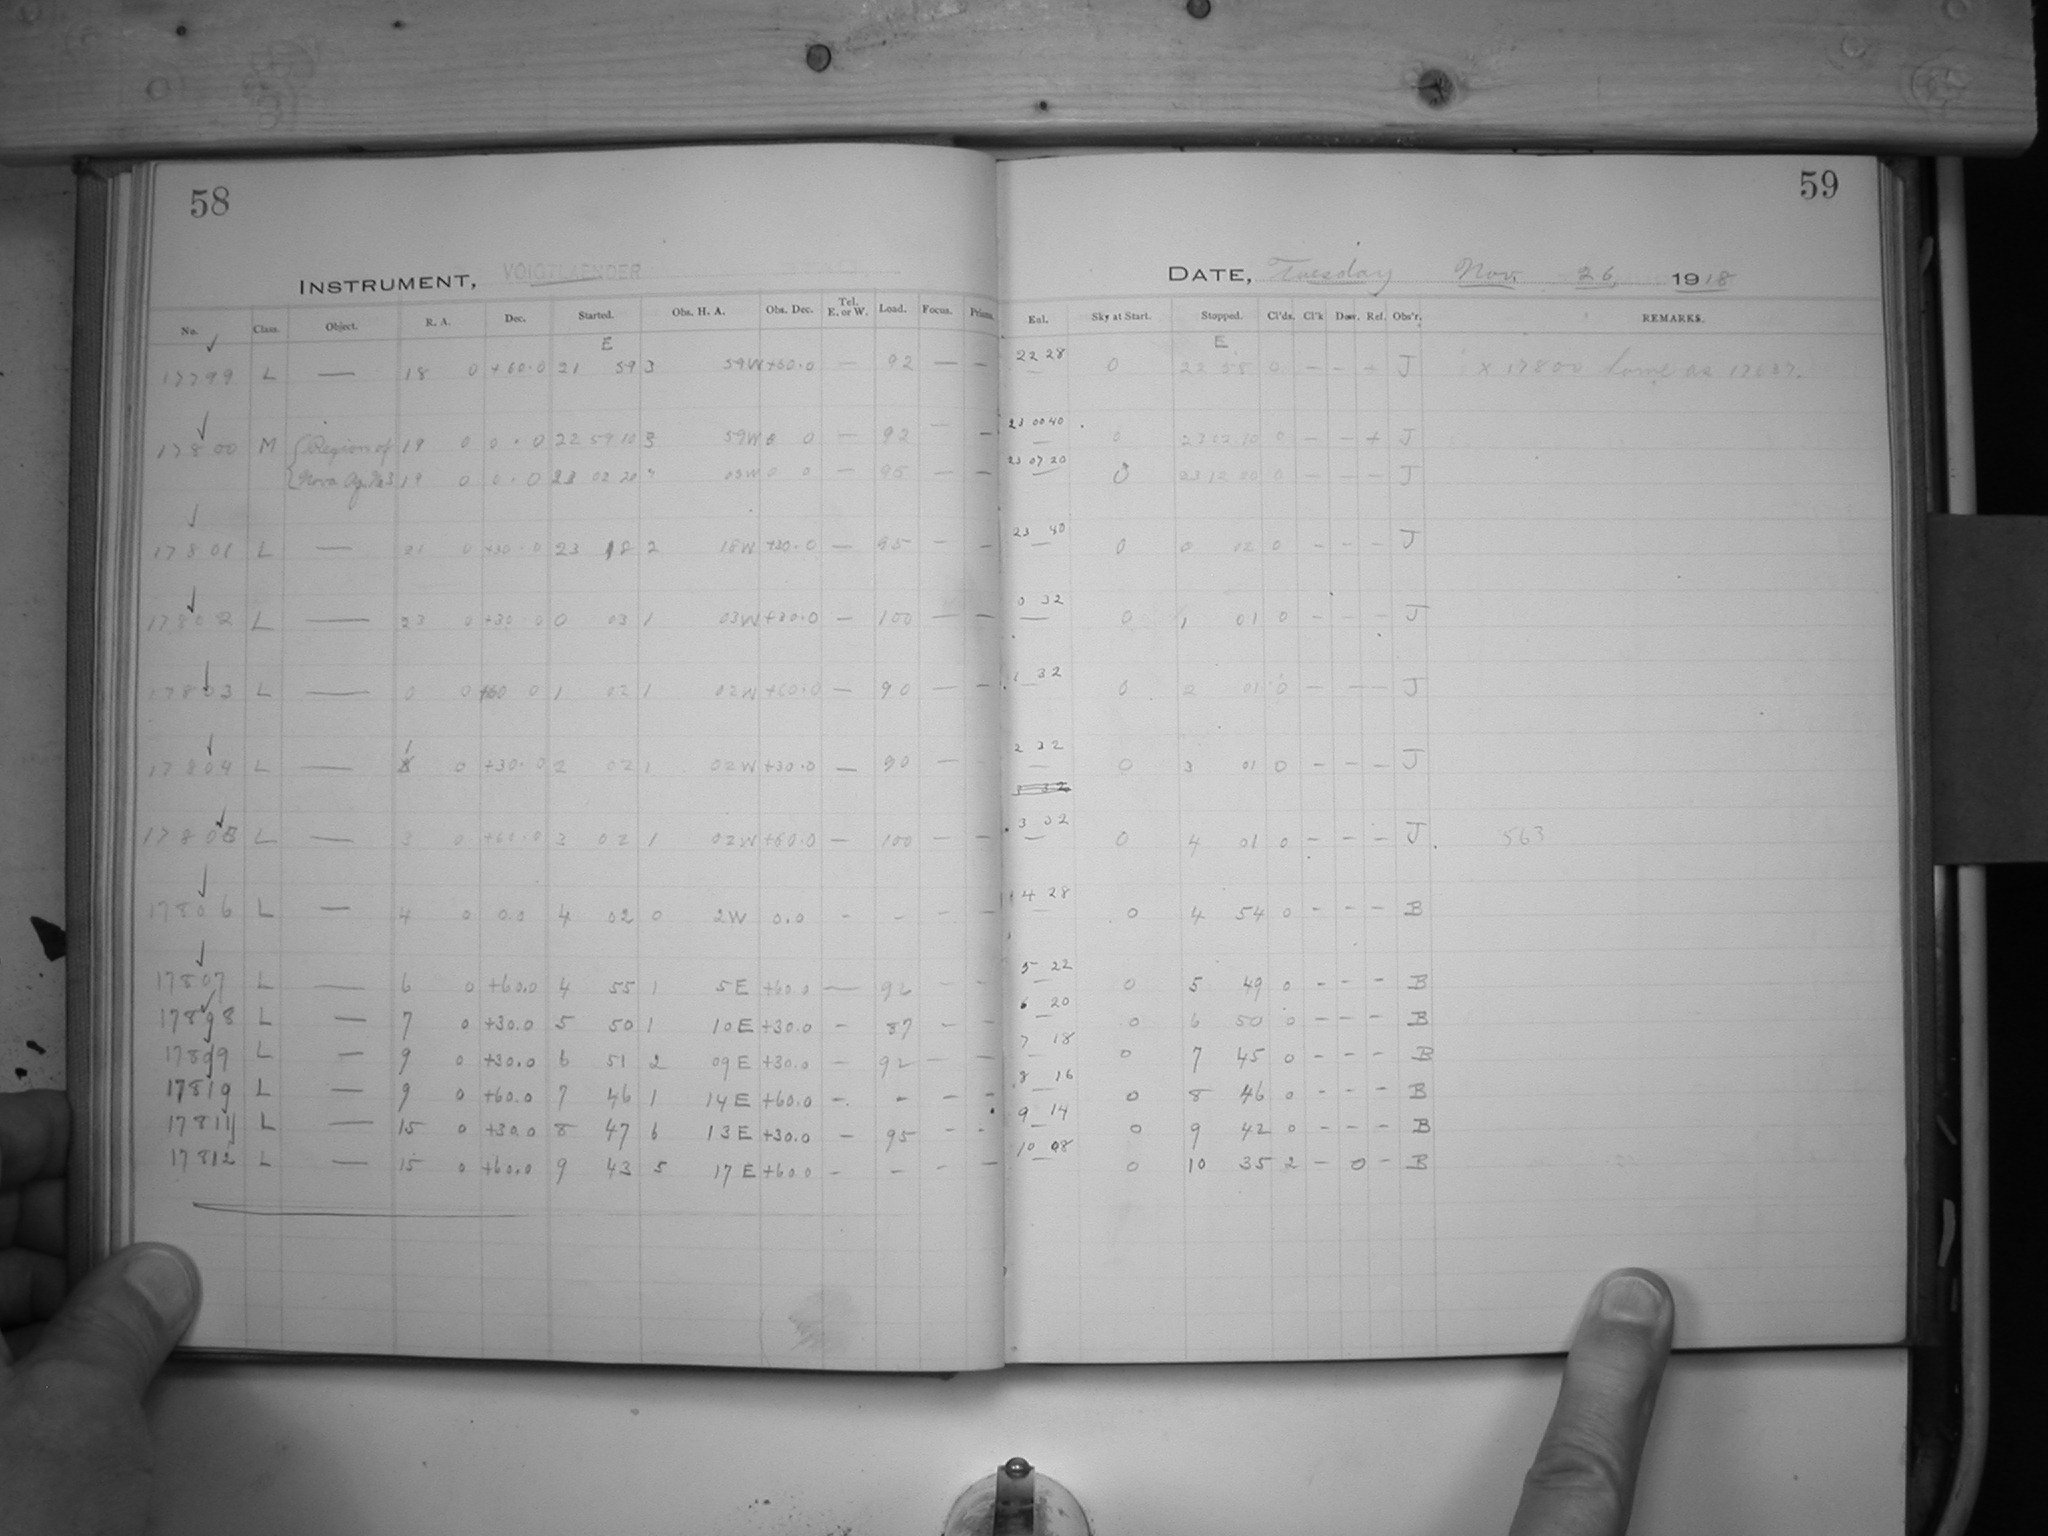 58
59
INSTRUMENT, VOIGTLAENDER
DATE, Tuesday Nov. 26, 1918
No. Class. Object. R. A. Dec. Started. Obs. H. A. Obs. Dec. Tel. E. or W. Load. Focus. Prisms. Eal. Sky at Start. Stopped. Cl'ds. Cl'k Dew. Rel. Obs'r. REMARKS.
E E
17799 L — 18 0 +60.0 21 59 3 59W +60.0 — 92 — — 22 28 0 22 58 0 - - + J x 17800 Same as 17637.
17800 M Region of 19 0 0.0 22 59 10 3 59W 0 0 — 92 — — 23 00 40 0 23 02 10 0 - - + J
Nova Aq. No3 19 0 0.0 23 02 20 " 03W 0 0 — 95 — — 23 07 20 0 23 12 20 0 - - - J
17801 L — 21 0 +30.0 23 18 2 18W +30.0 — 95 — — 23 40 0 0 02 0 - - - J
17802 L — 23 0 +30 0 0 03 1 03W +30.0 — 100 — — 0 32 0 1 01 0 - - - J
17803 L — 0 0 +60 0 1 02 1 02W +60.0 — 90 — — 1 32 0 2 01 0 - - - J
17804 L — 1 0 +30.0 2 02 1 02W +30.0 — 90 — — 2 32 0 3 01 0 - - - J
3 32
17805 L — 3 0 +60.0 3 02 1 02W +60.0 — 100 — — 3 32 0 4 01 0 - - - J. 563
17806 L — 4 0 0.0 4 02 0 2W 0.0 - - - — 4 28 0 4 54 0 - - - B
17807 L — 6 0 +60.0 4 55 1 5E +60.0 — 92 - - 5 22 0 5 49 0 - - - B
17808 L — 7 0 +30.0 5 50 1 10E +30.0 - 87 - - 6 20 0 6 50 0 - - - B
17809 L — 9 0 +30.0 6 51 2 09E +30.0 - 92 - - 7 18 0 7 45 0 - - - B
17810 L — 9 0 +60.0 7 46 1 14E +60.0 - - - - 8 16 0 8 46 0 - - - B
17811 L — 15 0 +30.0 8 47 6 13E +30.0 - 95 - - 9 14 0 9 42 0 - - - B
17812 L — 15 0 +60.0 9 43 5 17E +60.0 - - - - 10 08 0 10 35 2 - 0 - B